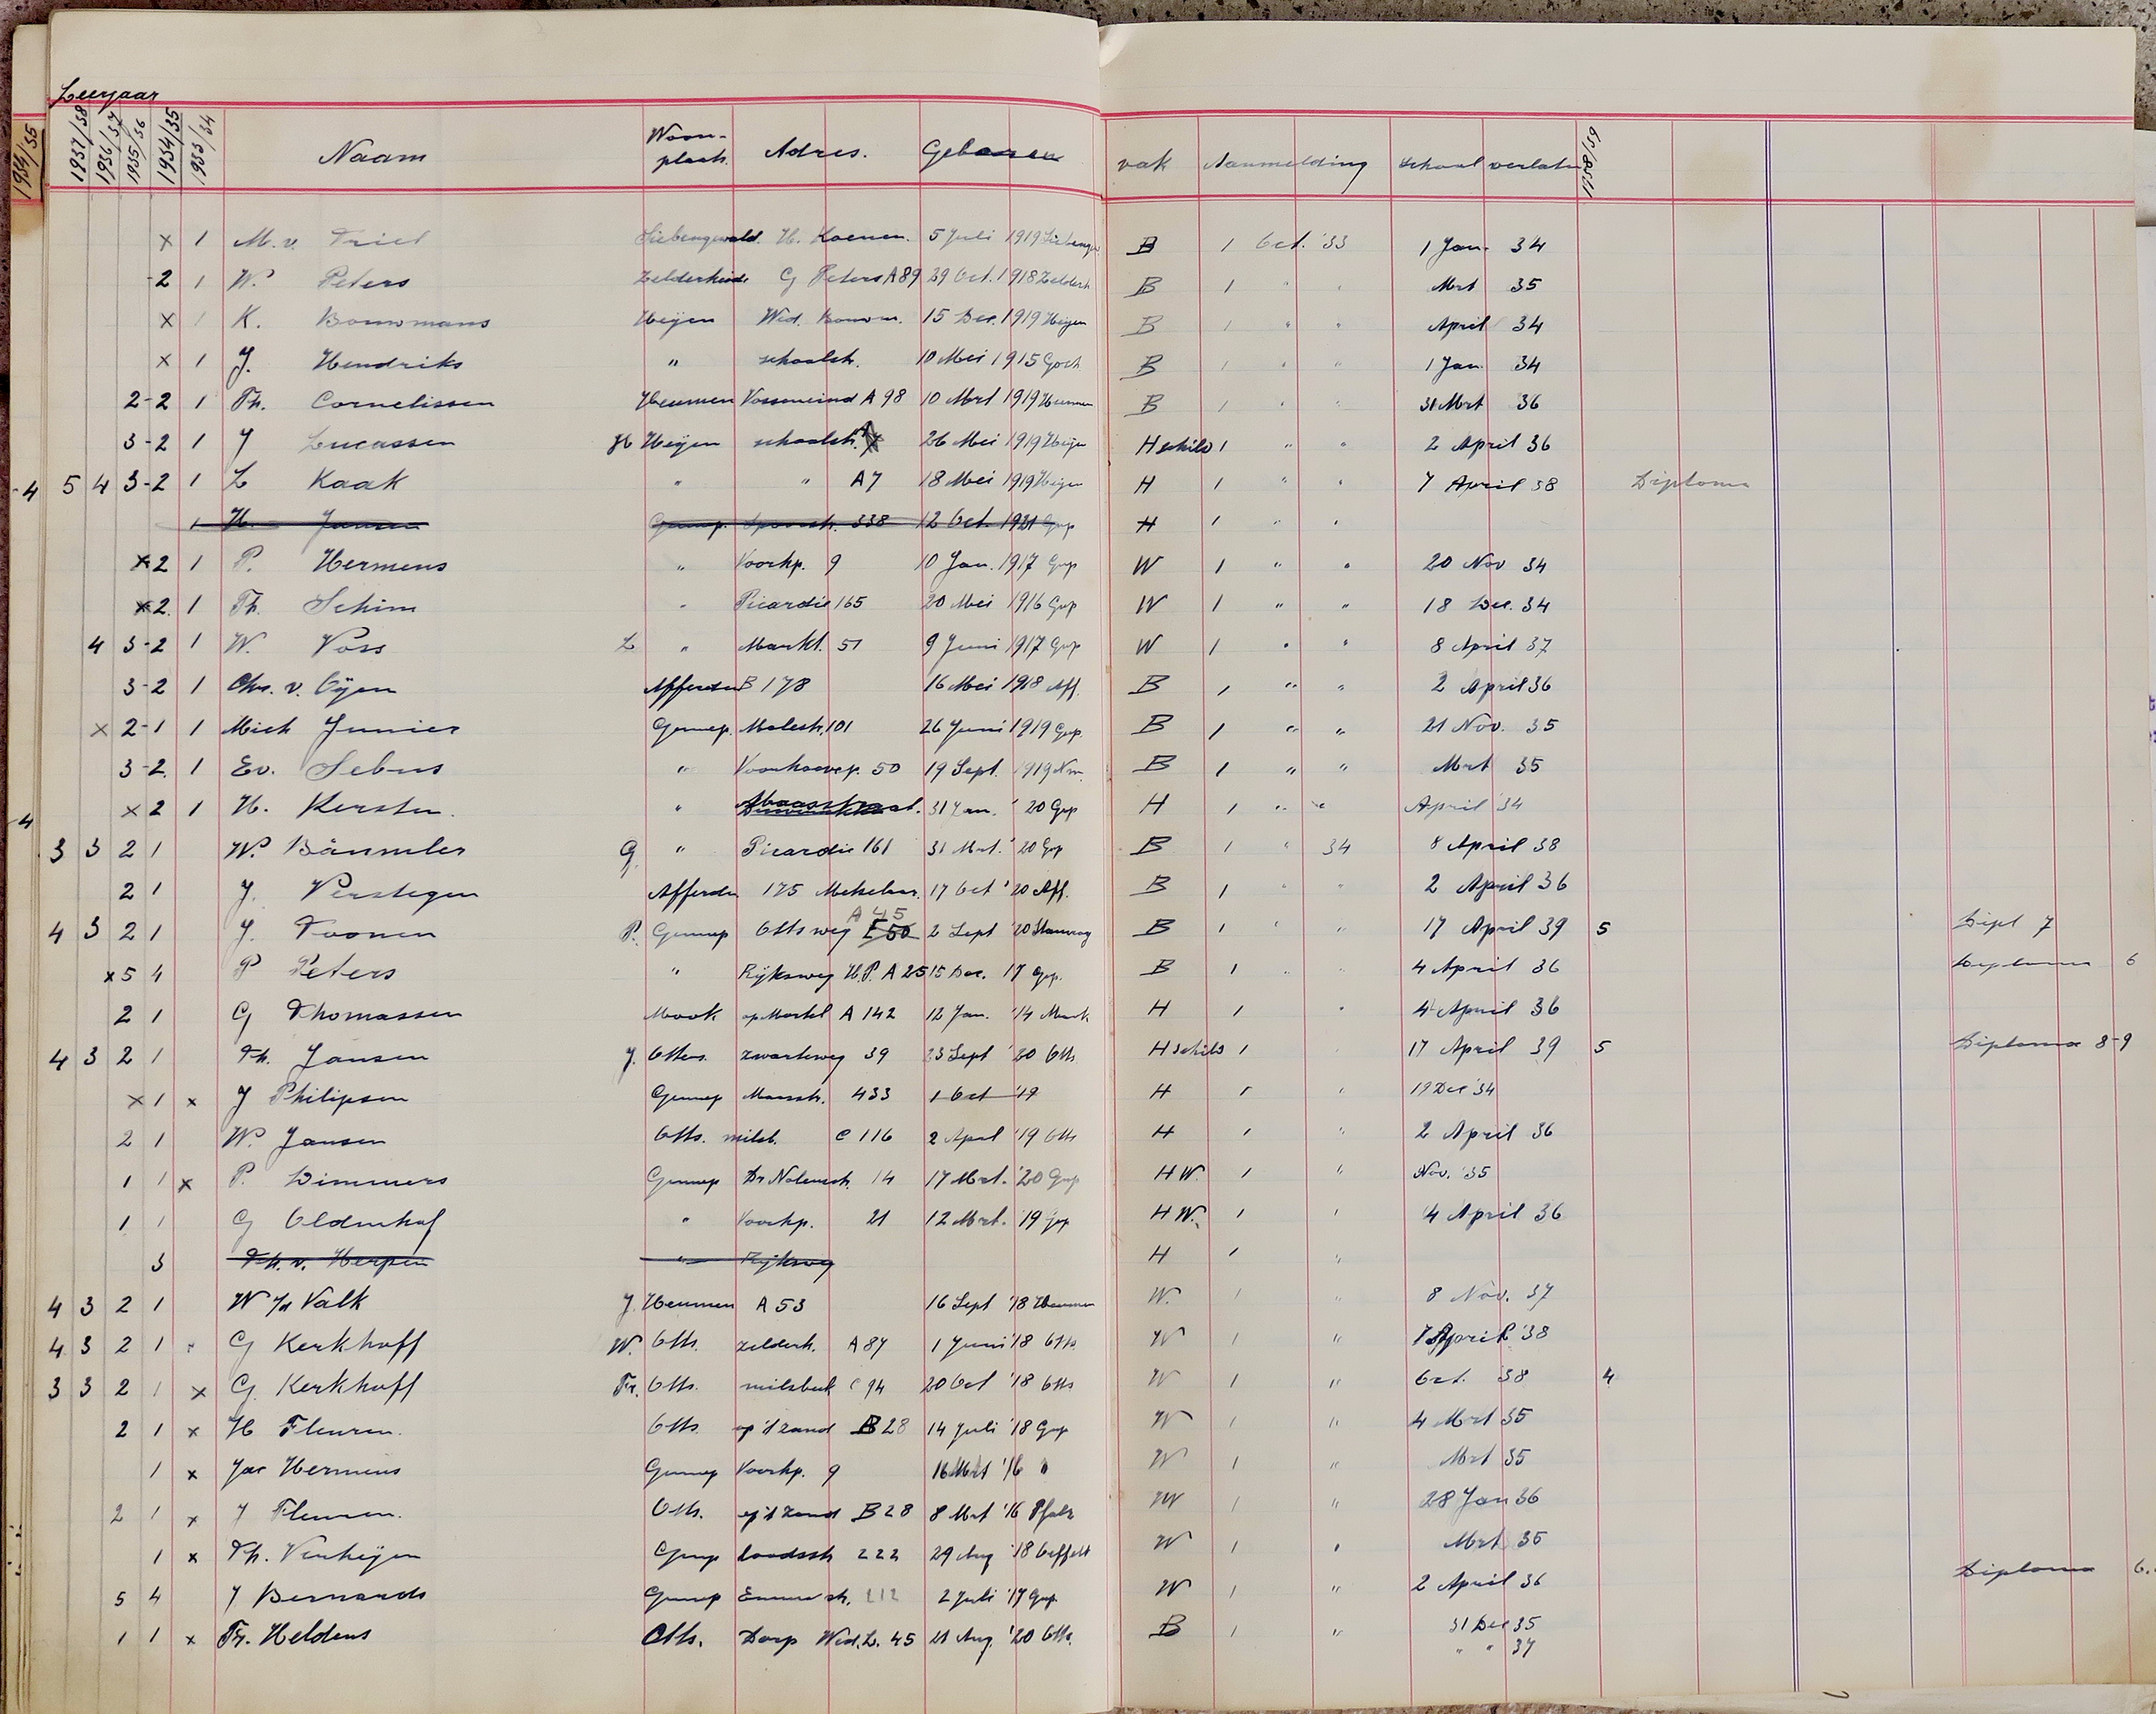 Leerjaar
1934/35 1937/38 1936/37 1935/36 1934/35 1933/34 Naam Woon-plaats. Adres. Geboren vak Aanmelding school verlaten 1938/39
x 1 M. v. Triel Siebengewald. H. Koenen. 5 Juli 1919 Siebengew B 1 Oct. '33 1 Jan. 34
-2 1 W. Peters Zelderheide G Peters A89 29 Oct. 1918 Zelderh B 1 " " Mrt 35
x 1 K. Bouwmans Heijen Wed. Bouwm. 15 Dec. 1919 Heijen B 1 " " April 34
x 1 J. Hendriks " schoolstr. 10 Mei 1915 Goch B 1 " " 1 Jan 34
2-2 1 Th. Cornelissen Heumen Vosseneind A 98 10 Mrt 1919 Heumen B 1 " " 31 Mrt 36
3-2 1 J Lucassen H Heijen schoolstr. 26 Mei 1919 Heijen H schild 1 " " 2 April 36
-4 5 4 3-2 1 L Kaak " " A7 18 Mei 1919 Heijen H 1 " " 7 April 38 Diploma
1 H. Jansen Gennep. Spoorstr. 338 12 Oct. 1921 Gnp H 1 " "
x2 1 P. Hermens " Voorhp. 9 10 Jan. 1917 Gnp W 1 " " 20 Nov 34
x2. 1 Th. Schim " Picardie 165 20 Mei 1916 Gnp W 1 " " 18 Dec. 34
4 3-2 1 W. Voss L " Markt. 51 9 Juni 1917 Gnp W 1 " " 8 April 37
3-2 1 Chr. v. Oijen Afferden B 178 16 Mei 1918 Aff. B 1 " " 2 April 36
x 2-1 1 Mich Junier Gennep. Molestr. 101 26 Juni 1919 Gnp. B 1 " " 21 Nov. 35
3-2. 1 Ev. Sebus " Voorhoevep. 50 19 Sept. 1919 Nm. B 1 " " Mrt 35
-4 x 2 1 H. Kersten. " 31 Jan. '20 Gnp H 1 " " April '34
3 3 2 1 W. Bäumler G. " Picardie 161 31 Mrt. '20 Gnp B 1 " 34 8 April 38
2 1 J. Verstegen Afferden 175 17 Oct '20 Aff. B 1 " " 2 April 36
4 3 2 1 J. Toonen P. Gennep Otts weg E 50 A 45 2 Sept '20 B 1 " " 17 April 39 5 Dipl 7
x 5 4 P Peters " Rijksweg H.P. A 25 15 Dec. 17 Gnp. B 1 " " 4 April 36 Diploma 6
2 1 G Thomassen Mook A 142 12 Jan. '14 Mook H 1 " 4 April 36
4 3 2 1 Th. Jansen J. Otters. zwarteweg 39 23 Sept '20 Otts. H schild 1 17 April 39 5 Diploma 8-9
x 1 x J Philipsen Gennep Maasstr. 433 1 Oct '19 H 1 " 19 Dec '34
2 1 W. Jansen Otts. milsb. C 116 2 April '19 Otts H 1 " 2 April 36
1 1 x P. Dimmers Gennep Dr Nolensstr. 14 17 Mrt. '20 Gnp H W. 1 " Nov. '35
1 1 G Oldenhof " Voorhp. 21 12 Mrt. '19 Gnp H W. 1 " 4 April 36
3 Th. v. Herpen " Rijksweg H 1 "
4 3 2 1 W v/d Valk J. Heumen A 53 16 Sept '18 Heumen W. 1 " 8 Nov. 37
4 3 2 1 G Kerkhoff W. Otts. zelderh. A 87 1 Juni '18 Otts W 1 " 7 April '38
3 3 2 1 x G. Kerkhoff Fr. Otts. milsbeek C 94 20 Oct '18 Otts W 1 " Oct. '38 4
2 1 x H Fleuren. Otts. op 't zand B 28 14 Juli '18 Gnp W 1 " 4 Mrt 35
1 x Jac Hermens Gennep Voorhp. 9 16 Mrt '16 " W 1 " Mrt 35
2 1 x J Fleuren. Otts. op 't zand B 28 8 Mrt '16 Pfalz W 1 " 28 Jan 36
1 x Th. Verheijen Gnp loodsstr 222 29 Aug '18 Oeffelt W 1 " Mrt 35
5 4 J Bernards Gennep Emmastr. 212 2 Juli '17 Gnp W 1 " 2 April 36 Diploma 6.
1 1 x Fr. Heldens Otts. Dorp Wed. L. 45 21 Aug. '20 Otts. B 1 " 31 Dec 35
" " 37